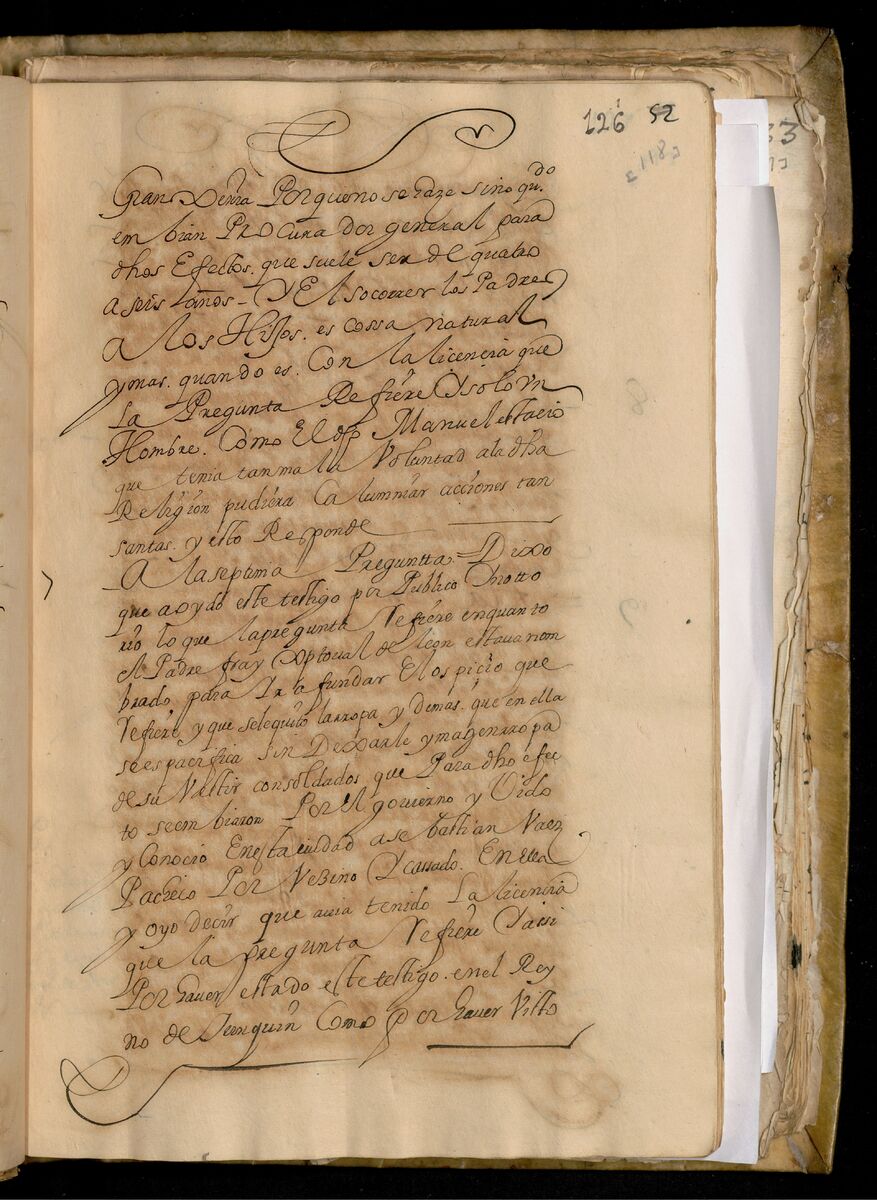 126 52
118
33
Gran Denra Porque no se haze sino qu.do
embian Procurador general para
dhos Efectos. que suele ser de quatro
a seis años - Y El socorrer los Padres
a los Hijos. es cossa natural
y mas. quando es. Con la licencia que
La Pregunta Refiere Y solo Vn
Hombre. Como El dho Manuel estacio
que tenia tan mala Voluntad a la dha
Religion pudiera Calumniar acciones tan
santas. y esto Responde
A la septima Preguntta = Dixo
que a oydo este testigo por Publico Y notto
rio lo que la pregunta Refiere en quanto
el Padre fray Xptoual de leon estaua nom
brado para Yr a fundar El ospicio que
Refiere y que se le quito la rropa y demas. que en ella
se espacifica sin Dexarle y magen rropa
de su Vestir con soldados que Para dho efec
to se embiaron Por el gouierno y Oido
y Conocio En esta ciudad a sebastian Vaez
Pacheco Por Vezino Y cassado. En ella
y oyo decir que auia tenido La licencia
que la pregunta Refiere Y assi
Por hauer estado este testigo. en el Rey
no de Tunquin Como por hauer Visto